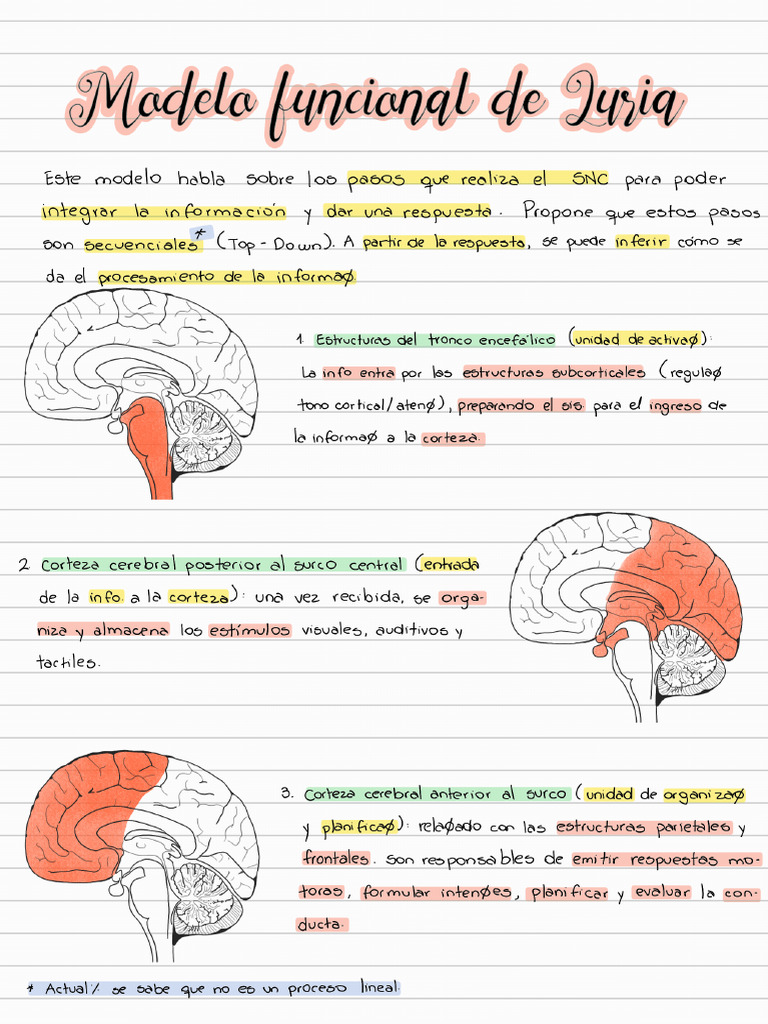 Modelo funcional de Luria
Este modelo habla sobre los pasos que realiza el SNC para poder
integrar la información y dar una respuesta. Propone que estos pasos
son secuenciales* (Top-Down). A partir de la respuesta, se puede inferir cómo se
da el procesamiento de la informaø
1 Estructuras del tronco encefálico (unidad de activaø):
La info entra por las estructuras subcorticales (regulaø
tono cortical/atenø), preparando el sis. para el ingreso de
la informaø a la corteza.
2 Corteza cerebral posterior al surco central (entrada
de la info. a la corteza): una vez recibida, se orga-
niza y almacena los estímulos visuales, auditivos y
táctiles.
3. Corteza cerebral anterior al surco (unidad de organizaø
y planificaø): relaøado con las estructuras parietales y
frontales. Son responsables de emitir respuestas mo-
toras, formular intenøes, planificar y evaluar la con-
ducta.
* Actual/. se sabe que no es un proceso lineal.